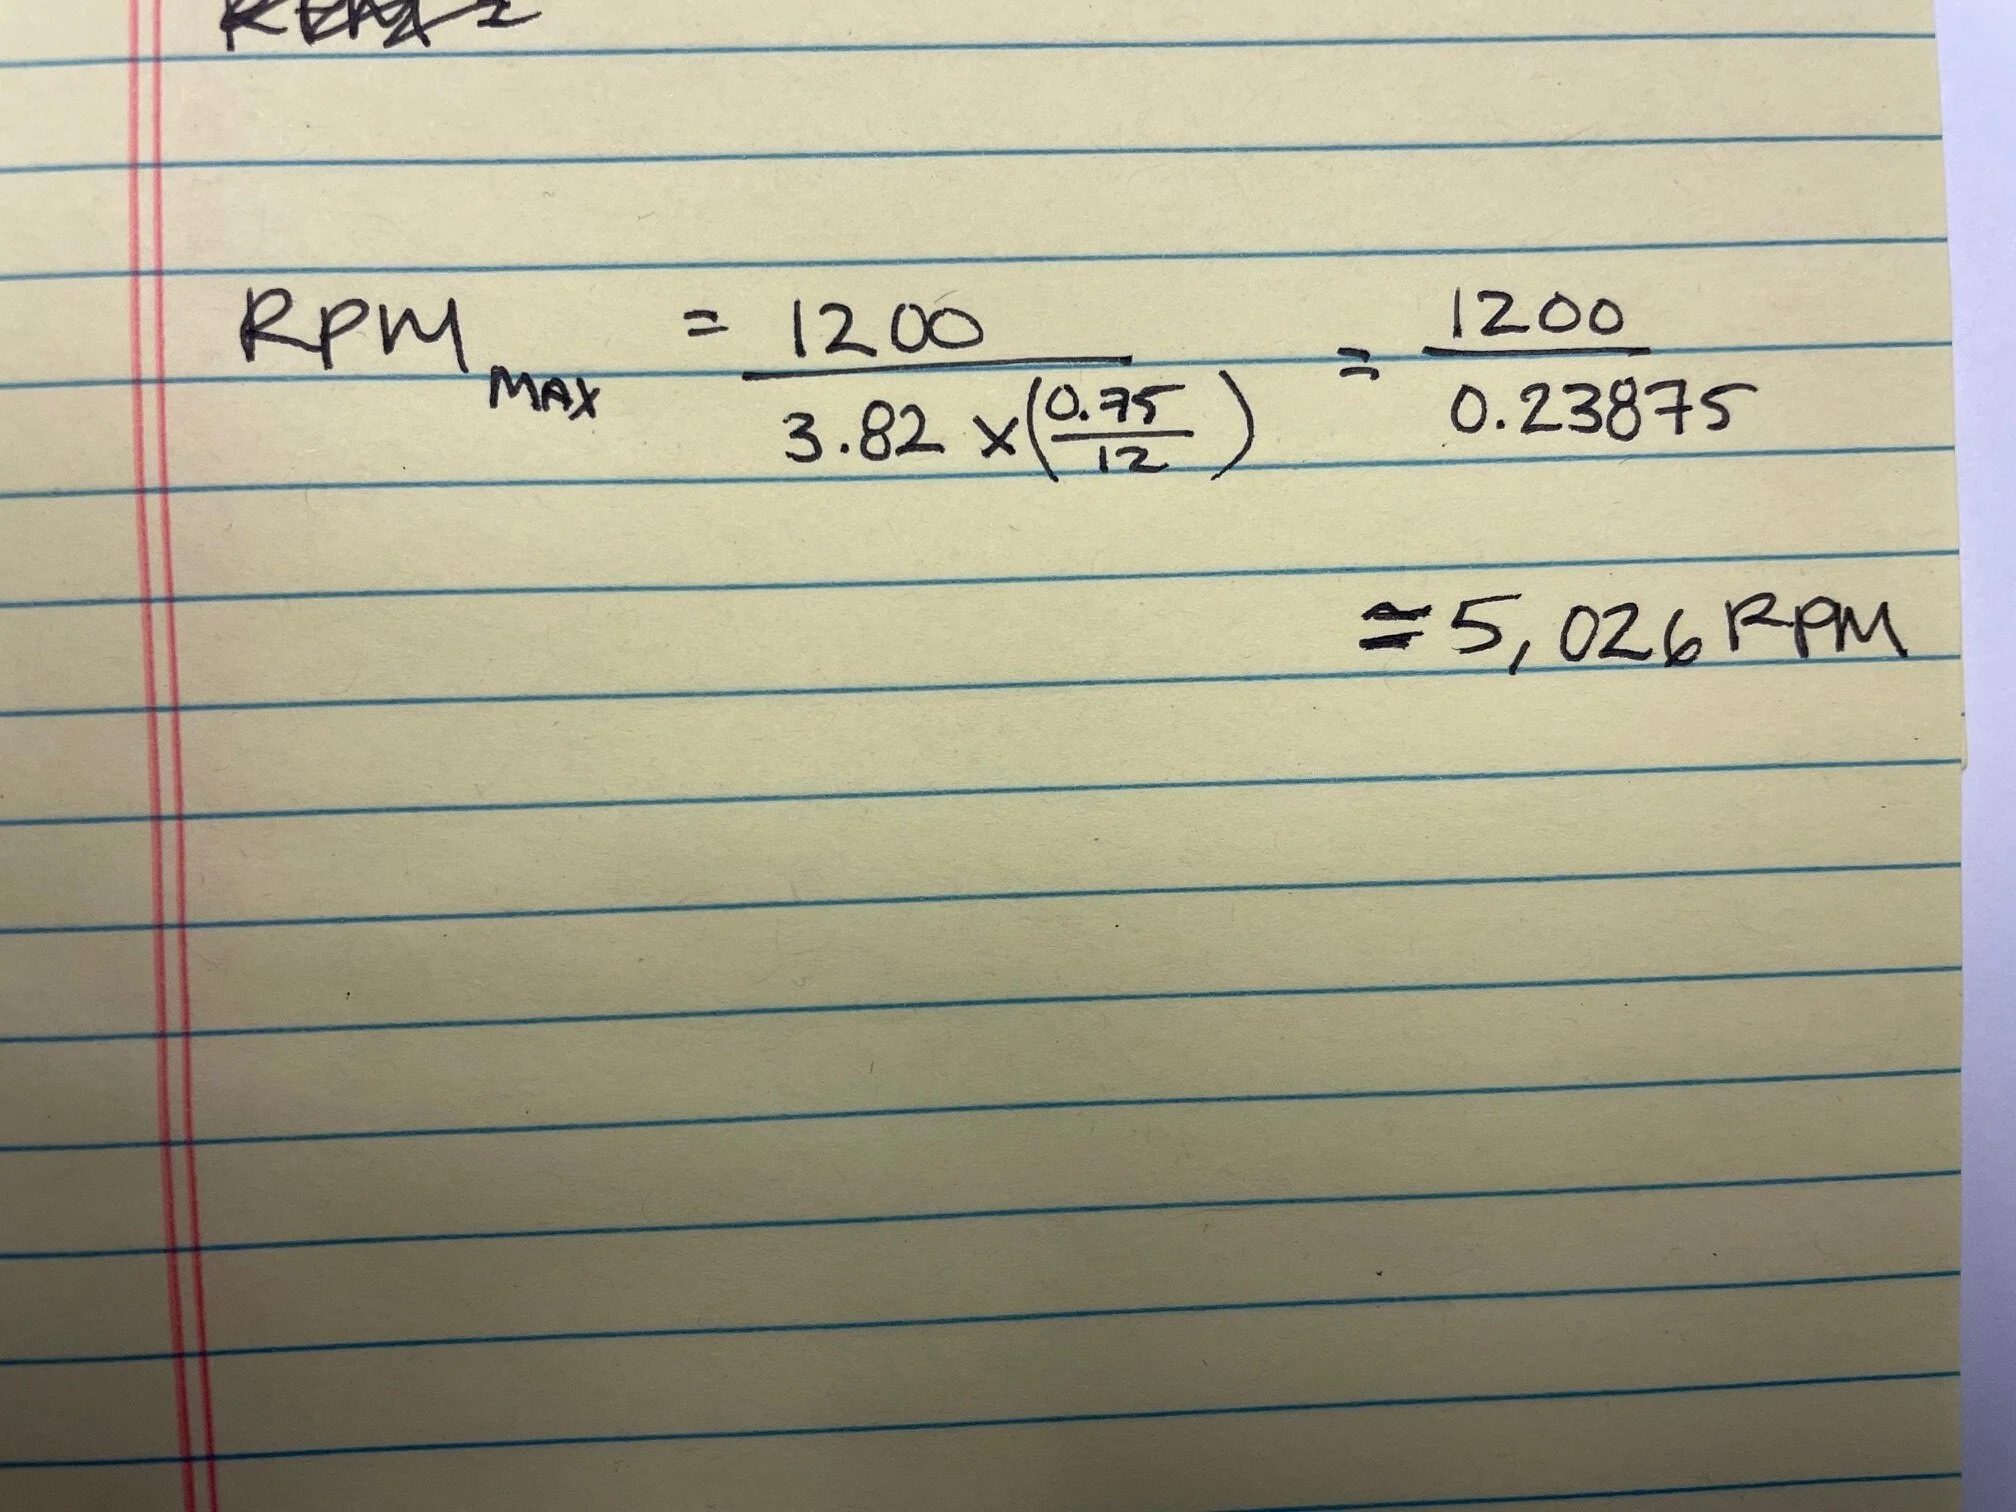 RPM MAX = 1200 / 3.82 x (0.75 / 12) = 1200 / 0.23875
≈ 5,026 RPM